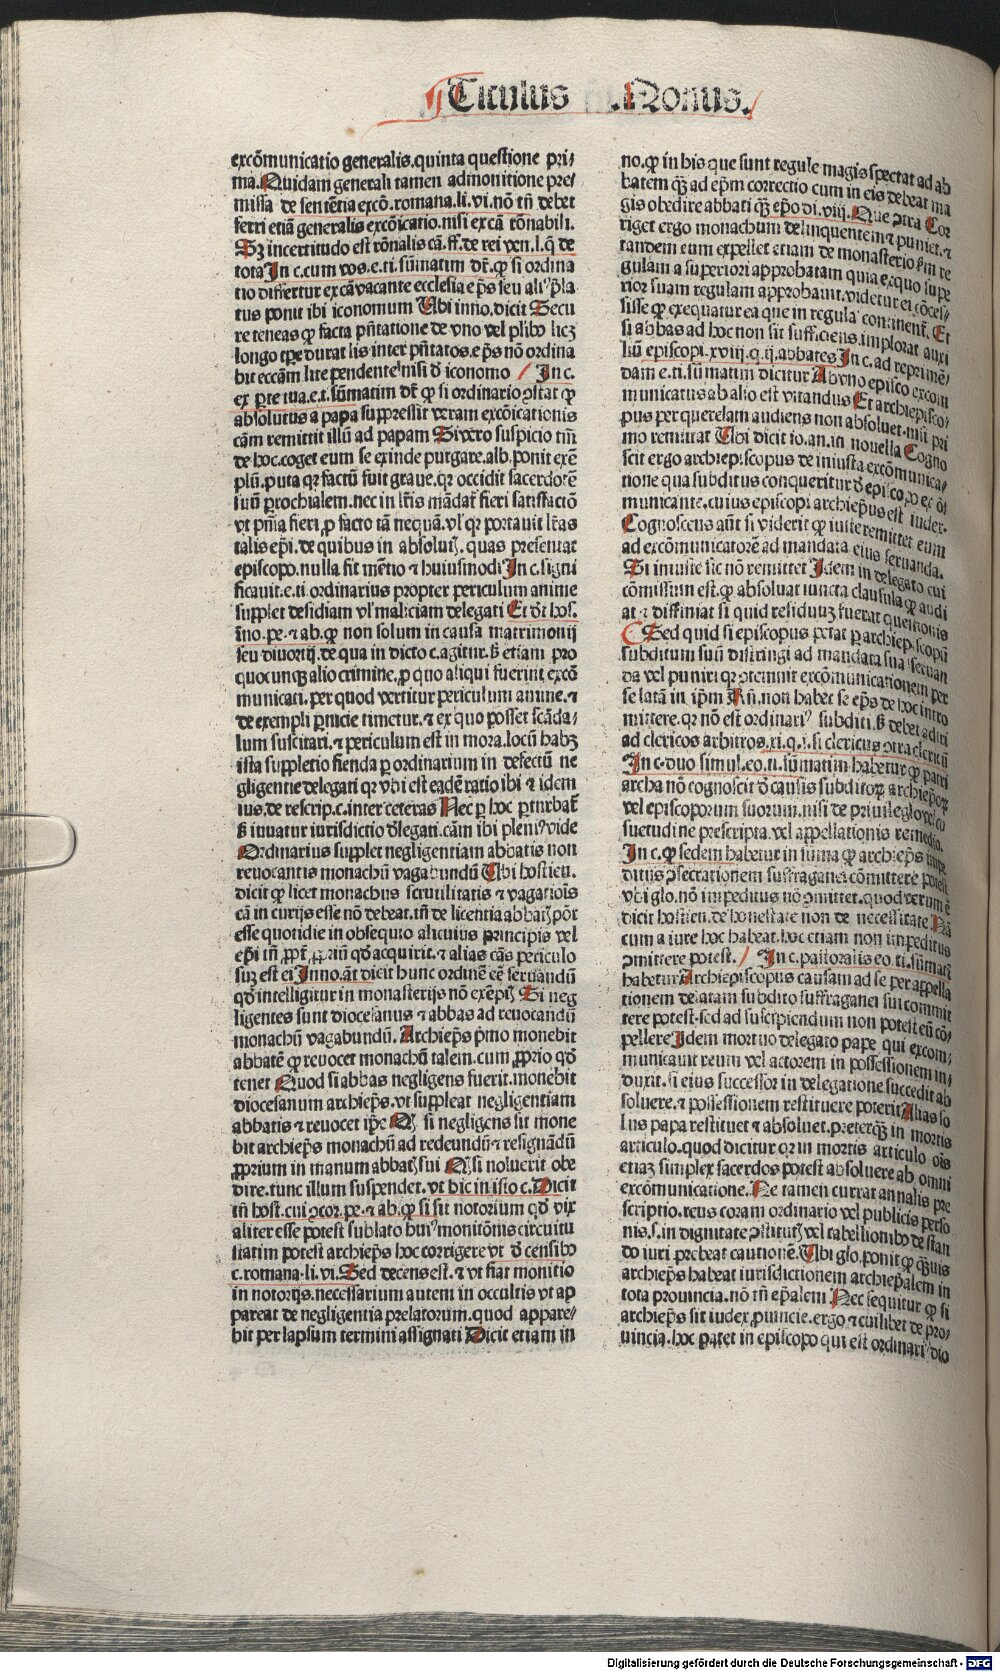 Titulus .Nonus.
excōmunicatio generalis.quinta questione pri⸗
ma.Quidam generali tamen admonitione pre⸗
missa de sentētia excō.romana.li.vi.nō tn̄ debet
ferri etiā generalis excōicatio.nisi ex cā rōnabili.
Sꝫ incertitudo est rōnalis cā.ff.de rei ven.l.q̄ de
tota In c.cum vos.e.ti.sūmatim dr̄.ꝙ si ordina
tio differtur ex cā vacante ecclesia ep̄s seu aliꝰ p̄la
tus ponit ibi iconomum Ubi inno.dicit Secu
re teneas ꝙ facta pn̄tatione de vno vel plibꝰ licꝫ
longo tp̄e durat lis inter pn̄tatos.ep̄s nō ordina
bit eccām lite pendente nisi d̄ iconomo In c.
ex pte tua.e.t.sūmatim dr̄ ꝙ si ordinario ɔstat ꝙ
absolutus a papa suppressit veram excōicationis
cām remittit illū ad papam Si vero suspicio tm̄
de hoc.coget eum se exinde purgare.alb.ponit exē
plū.puta qr factū fuit graue.qr occidit sacerdotē
suū prochialem.nec in lr̄is mādat̄ fieri satisfactō
vt pm̄a fieri ꝓ facto tā nequā.vl' qr portauit lr̄as
talis ep̄i.de quibus in absolutꝭ.quas presentat
episcopo.nulla fit mētio ⁊ huiusmodi In c.signi
ficauit.e.ti.ordinarius propter periculum anime
supplet desidiam vl' maliciam delegati Et dr̄t hos.
īno.pe.⁊ ab.ꝙ non solum in causa matrimonij
seu diuortij.de qua in dicto c.agitur.s̄ etiam pro
quocunqꝫ alio crimine.ꝓ quo aliqui fuerint excō
municati.per quod vertitur periculum anime.⁊
de exempli pernicie timetur.⁊ ex quo posset scāda⸗
lum suscitari.⁊ periculum est in mora.locū habꝫ
ista suppletio fienda ꝑ ordinarium in defectū ne
gligentie delegati qr vbi est eadē ratio ibi ⁊ idem
ius.de rescrip.c.inter ceteras Nec ꝑ hoc ꝑturbat̄
s̄ iuuatur iurisdictio d̄legati.cām ibi pleniꝰ vide
Ordinarius supplet negligentiam abbatis non
reuocantis monachū vagabundū Ubi hostien.
dicit ꝙ licet monachus scrutilitatis ⁊ vagatiōis
cā in curijs esse nō debeat.tn̄ de licentia abbatꝭ pōt
esse quotidie in obsequio alicuius principis vel
ep̄i
suꝫ est ei Inno.āt dicit hunc ordinē eē seruandū
qd̄ intelligitur in monasterijs nō exēptꝭ Si neg
ligentes sunt diocesanus ⁊ abbas ad reuocandū
monachū vagabundū.Archiep̄s pmo monebit
abbatē ꝙ reuocet monachū talem.cum ꝓprio qd̄
tenet Quod si abbas negligens fuerit.monebit
diocesanum archiep̄s.vt suppleat negligentiam
abbatis ⁊ reuocet ipse Qꝫ si negligens sit mone
bit archiep̄s monachū ad redeundū ⁊ resignādū
ꝓprium in manum abbatꝭ sui Qꝫ si noluerit obe
dire.tunc illum suspendet.vt hic in isto c.Dicit
tn̄ host.cui ɔcor.pe.⁊ ab.ꝙ si sit notorium qd̄ vix
aliter esse potest sublato huiꝰ monitōnis circuitu
statim potest archiep̄s hoc corrigere vt d̄ censibꝰ
c.romana.li.vi.Sed decens est.⁊ vt fiat monitio
in notorijs.necessarium autem in occultis vt ap
pareat de negligentia prelatorum.quod appare⸗
bit per lapsum termini assignati Dicit etiam in
no.ꝙ in his que sunt regule magis spectat ad ab
batem qꝫ ad ep̄m correctio cum in eis debeat ma
gis obedire abbati qꝫ ep̄o di.viij.Que ɔtra Cor
riget ergo monachum delinquentem ⁊ puniet.⁊
tandem eum expellet etiam de monasterio s̄m re
gulam a superiori approbatam quia ex quo supe
rior suam regulam approbauit.videtur ei cōces⸗
sisse ꝙ exequatur ea que in regula continent̄.Et
si abbas ad hoc non sit sufficiens.implorat auxi
liū episcopi.xviij.q.ij.abbates In c.ad reprimē⸗
dam e.ti.sūmatim dicitur Ab vno episco excom
municatus ab alio est vitandus Et archiepisco⸗
pus per querelam audiens non absoluet.nisi pri
mo remittat Ubi dicit io.an.in nouella Cogno
scit ergo archiepiscopus de iniusta excōmunica⸗
tione qua subditus conqueritur d̄ episcopo
municante.cuius episcopi archiep̄us est iudex.
Cognoscens aūt si viderit ꝙ iuste remittet eum
ad excōmunicatorē ad mandata eius seruanda.
Si iniuste sic nō remittet Idem in delegato cui
cōmissum est.ꝙ absoluat iuncta clausula ꝙ audi
at ⁊ diffiniat si quid residuuꝫ fuerat questionis
Sed quid si episcopus petat ꝑ archiepiscopū
subditum suū distringi ad mandata sua seruan
da vel puniri qr ɔtemnit excōmunicationem per
se latā in ip̄m Rn̄.non habet se ep̄s de hoc intro
mittere.qr nō est ordinariꝰ subditi.s̄ debet adiri
ad clericos arbitros.xi.q.i.si clericus ɔtra clericū
In c.duo simul.eo.ti.sūmatim habetur ꝙ patri
archa nō cognoscit d̄ causis subditoꝝ archiepoꝝ
vel episcoporum suorum.nisi de priuilegio vel cō
suetudine prescripta.vel appellationis remedio.
In c.ꝙ sedem habetur in suma ꝙ archiep̄s impe
ditus ɔsecrationem suffraganei cōmittere potest
vbi glo.nō impeditus nō ɔmittet.quod verum ē
dicit hostien.de honestate non de necessitate Nā
cum a iure hoc habeat.hoc etiam non impeditus
ɔmittere potest. In c.pastoralis eo.ti.sūmatꝫ
habetur Archiepiscopus causam ad se per appella
tionem delatam subdito suffraganei sui commit
tere potest.sed ad suscipiendum non potest eū cō⸗
pellere Idem mortuo delegato pape qui excom⸗
municauit reum vel actorem in possessionem in⸗
duxit.si eius successor in delegatione succedit ab
soluere.⁊ possessionem restituere poterit Alias so
lus papa restituet ⁊ absoluet.preterqꝫ in mortis
articulo.quod dicitur qr in mortis articulo oīs
etiaꝫ simplex sacerdos potest absoluere ab omni
excōmunicatione.Ne tamen currat annalis pre
scriptio.reus coram ordinario vel publicis perso
nis.s.in dignitate ɔstitutꝭ vel tabellionibꝰ de stan
do iuri prebeat cautionē.Ubi glo.ponit ꝙ qꝫuis
archiep̄s habeat iurisdictionem archiep̄alem in
tota prouincia.nō tn̄ ep̄alem Nec sequitur ꝙ si
archiep̄s sit iudex ꝓuincie.ergo ⁊ cuilibet de pro⸗
uincia.hoc patet in episcopo qui est ordinariꝰ dio
Digitalisierung gefördert durch die Deutsche Forschungsgemeinschaft - DFG